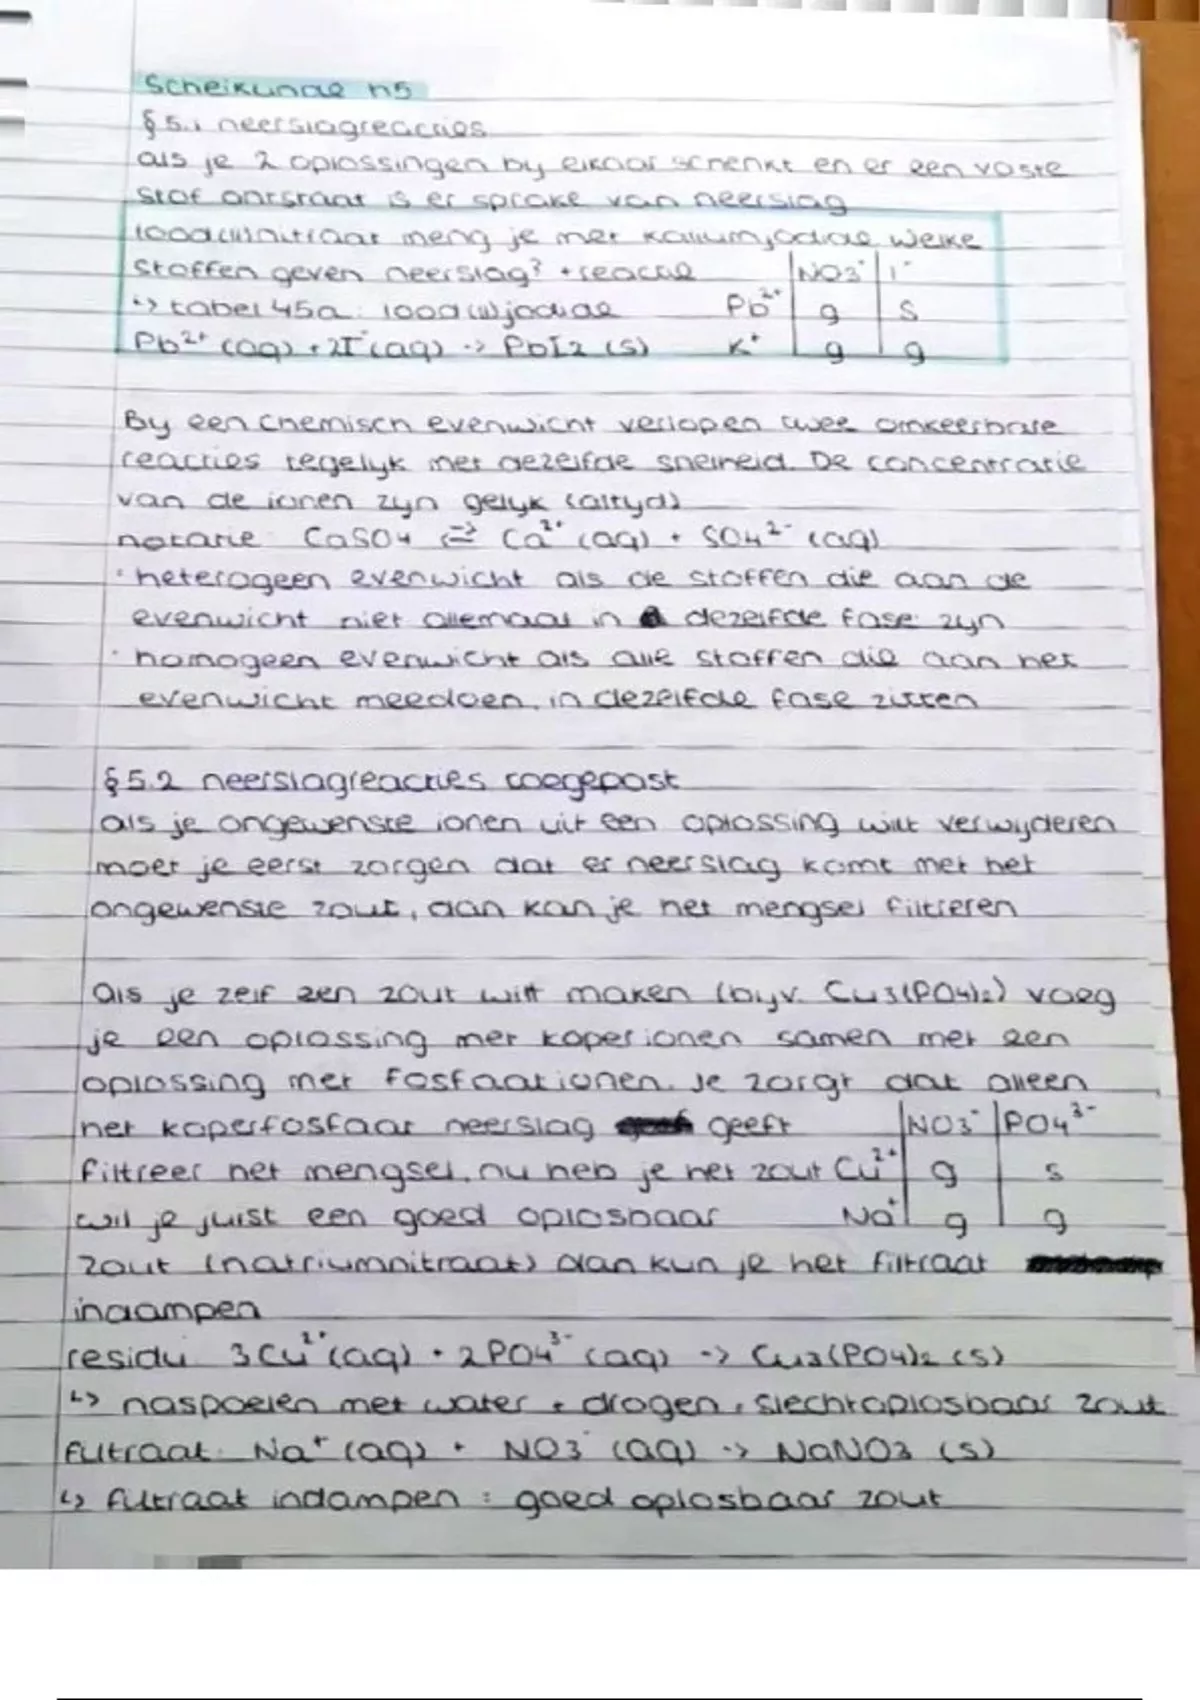 Scheikunde h5
§5.1 neerslagreacties
als je 2 oplossingen bij elkaar schenkt en er een vaste
stof ontstaat is er sprake van neerslag
lood(II)nitraat meng je met kaliumjodide. welke
stoffen geven neerslag? + reactie | NO3⁻ | I⁻
↳ tabel 45a: lood(II)jodide Pb²⁺ | g | s
Pb²⁺ (aq) + 2I⁻ (aq) -> PbI2 (s) K⁺ | g | g
Bij een chemisch evenwicht verlopen twee omkeerbare
reacties tegelijk met dezelfde snelheid. De concentratie
van de ionen zijn gelijk (altijd)
notatie: CaSO4 ⇌ Ca²⁺ (aq) + SO4²⁻ (aq)
· heterogeen evenwicht als de stoffen die aan de
evenwicht niet allemaal in dezelfde fase zijn
· homogeen evenwicht als alle stoffen die aan het
evenwicht meedoen, in dezelfde fase zitten
§5.2 neerslagreacties toegepast
als je ongewenste ionen uit een oplossing wilt verwijderen
moet je eerst zorgen dat er neerslag komt met het
ongewenste zout, dan kan je het mengsel filtreren
Als je zelf een zout wilt maken (bijv. Cu3(PO4)2) voeg
je een oplossing met koper ionen samen met een
oplossing met fosfaationen. Je zorgt dat alleen
het koperfosfaat neerslag geeft | NO3⁻ | PO4³⁻
filtreer het mengsel, nu heb je het zout Cu²⁺ | g | s
wil je juist een goed oplosbaar Na⁺ | g | g
zout (natriumnitraat) dan kun je het filtraat
indampen
residu: 3Cu²⁺ (aq) + 2PO4³⁻ (aq) -> Cu3(PO4)2 (s)
↳ naspoelen met water + drogen, slechtoplosbaar zout
filtraat: Na⁺ (aq) + NO3⁻ (aq) -> NaNO3 (s)
↳ filtraat indampen: goed oplosbaar zout